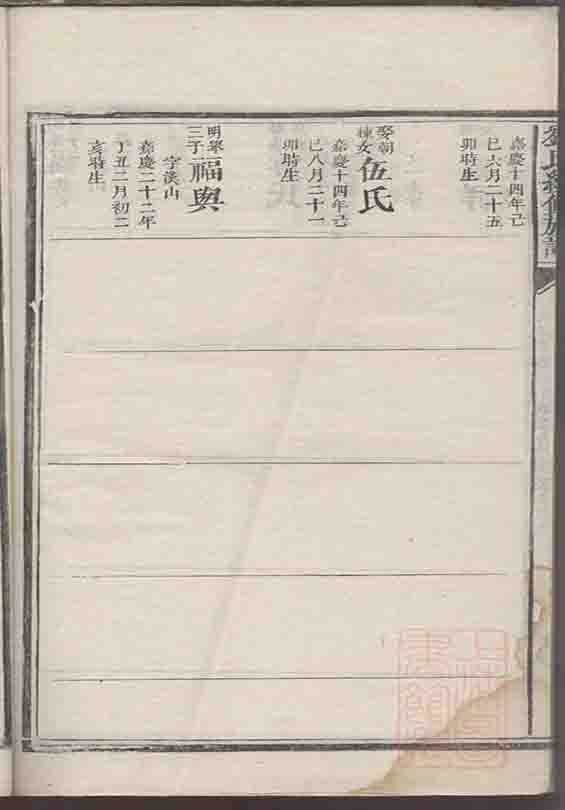 嘉慶十四年己
巳六月二十五
卯時生
娶朝
棟女
伍氏
嘉慶十四年己
巳八月二十一
卯時生
明翠
三子
福興
字漢山
嘉慶二十二年
丁丑二月初二
亥時生